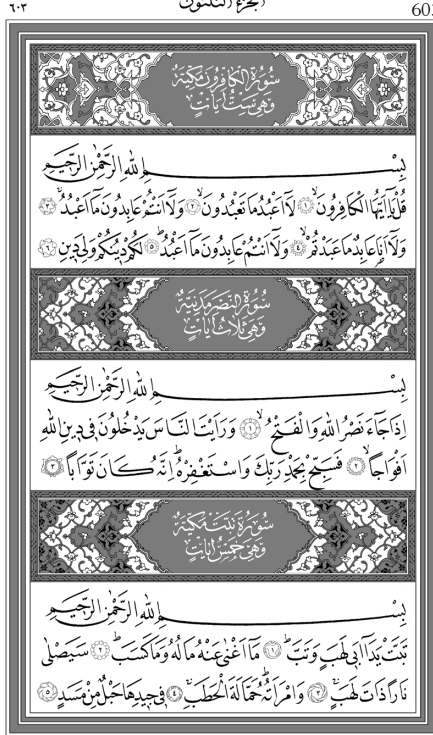 ٦٠٣ الجزء الثلاثون 603
سُورَةُ الْكَافِرُونَ مَكِّيَّةٌ
وَهِيَ سِتُّ اٰيَاتٍ
بِسْمِ اللهِ الرَّحْمٰنِ الرَّحٖيمِ
قُلْ يَٓا اَيُّهَا الْكَافِرُونَۙ ﴿١﴾ لَٓا اَعْبُدُ مَا تَعْبُدُونَۙ ﴿٢﴾ وَلَٓا اَنْتُمْ عَابِدُونَ مَٓا اَعْبُدُۚ ﴿٣﴾
وَلَٓا اَنَا۬ عَابِدٌ مَا عَبَدْتُمْۙ ﴿٤﴾ وَلَٓا اَنْتُمْ عَابِدُونَ مَٓا اَعْبُدُۜ ﴿٥﴾ لَكُمْ دٖينُكُمْ وَلِيَ دٖينِ ﴿٦﴾
سُورَةُ النَّصْرِ مَدَنِيَّةٌ
وَهِيَ ثَلَاثُ اٰيَاتٍ
بِسْمِ اللهِ الرَّحْمٰنِ الرَّحٖيمِ
اِذَا جَٓاءَ نَصْرُ اللهِ وَالْفَتْحُۙ ﴿١﴾ وَرَاَيْتَ النَّاسَ يَدْخُلُونَ فٖي دٖينِ اللهِ
اَفْوَاجاًۙ ﴿٢﴾ فَسَبِّحْ بِحَمْدِ رَبِّكَ وَاسْتَغْفِرْهُۜ اِنَّهُ كَانَ تَوَّاباً ﴿٣﴾
سُورَةُ تَبَّتْ مَكِّيَّةٌ
وَهِيَ خَمْسُ اٰيَاتٍ
بِسْمِ اللهِ الرَّحْمٰنِ الرَّحٖيمِ
تَبَّتْ يَدَٓا اَبٖي لَهَبٍ وَتَبَّۜ ﴿١﴾ مَٓا اَغْنٰى عَنْهُ مَالُهُ وَمَا كَسَبَۜ ﴿٢﴾ سَيَصْلٰى
نَاراً ذَاتَ لَهَبٍۚ ﴿٣﴾ وَامْرَاَتُهُۜ حَمَّالَةَ الْحَطَبِۚ ﴿٤﴾ فٖي جٖيدِهَا حَبْلٌ مِنْ مَسَدٍ ﴿٥﴾